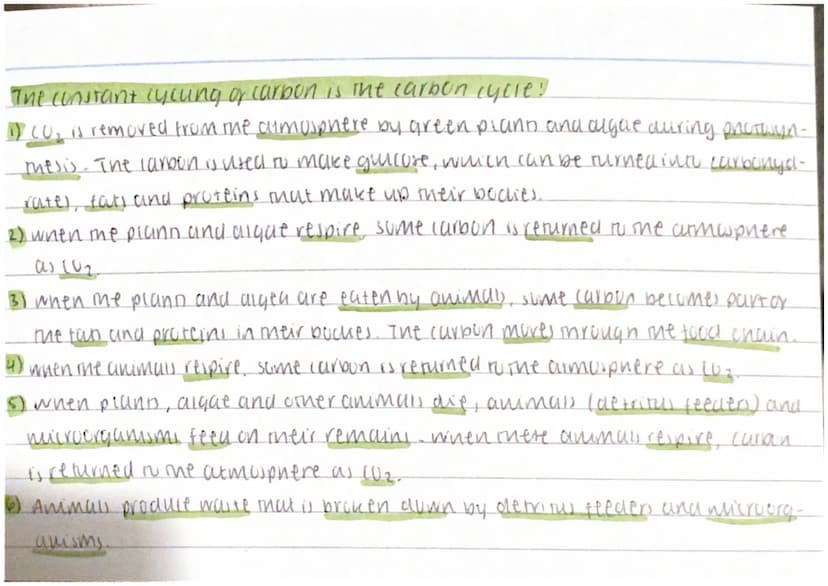 The constant cycling of carbon is the carbon cycle!
1) CO2 is removed from the atmosphere by green plants and algae during photosyn-
thesis. The carbon is used to make glucose, which can be turned into carbohyd-
rates, fats and proteins that make up their bodies.
2) when the plants and algae respire, some carbon is returned to the atmosphere
as CO2.
3) when the plants and algea are eaten by animals, some carbon becomes part of
the fats and proteins in their bodies. The carbon moves through the food chain.
4) when the animals respire, some carbon is returned to the atmosphere as CO2.
5) when plants, algae and other animals die, animals (detritus feeders) and
microorganisms feed on their remains. when these animals respire, carbon
is returned to the atmosphere as CO2.
6) Animals produce waste that is broken down by detritus feeders and microorg-
anisms.